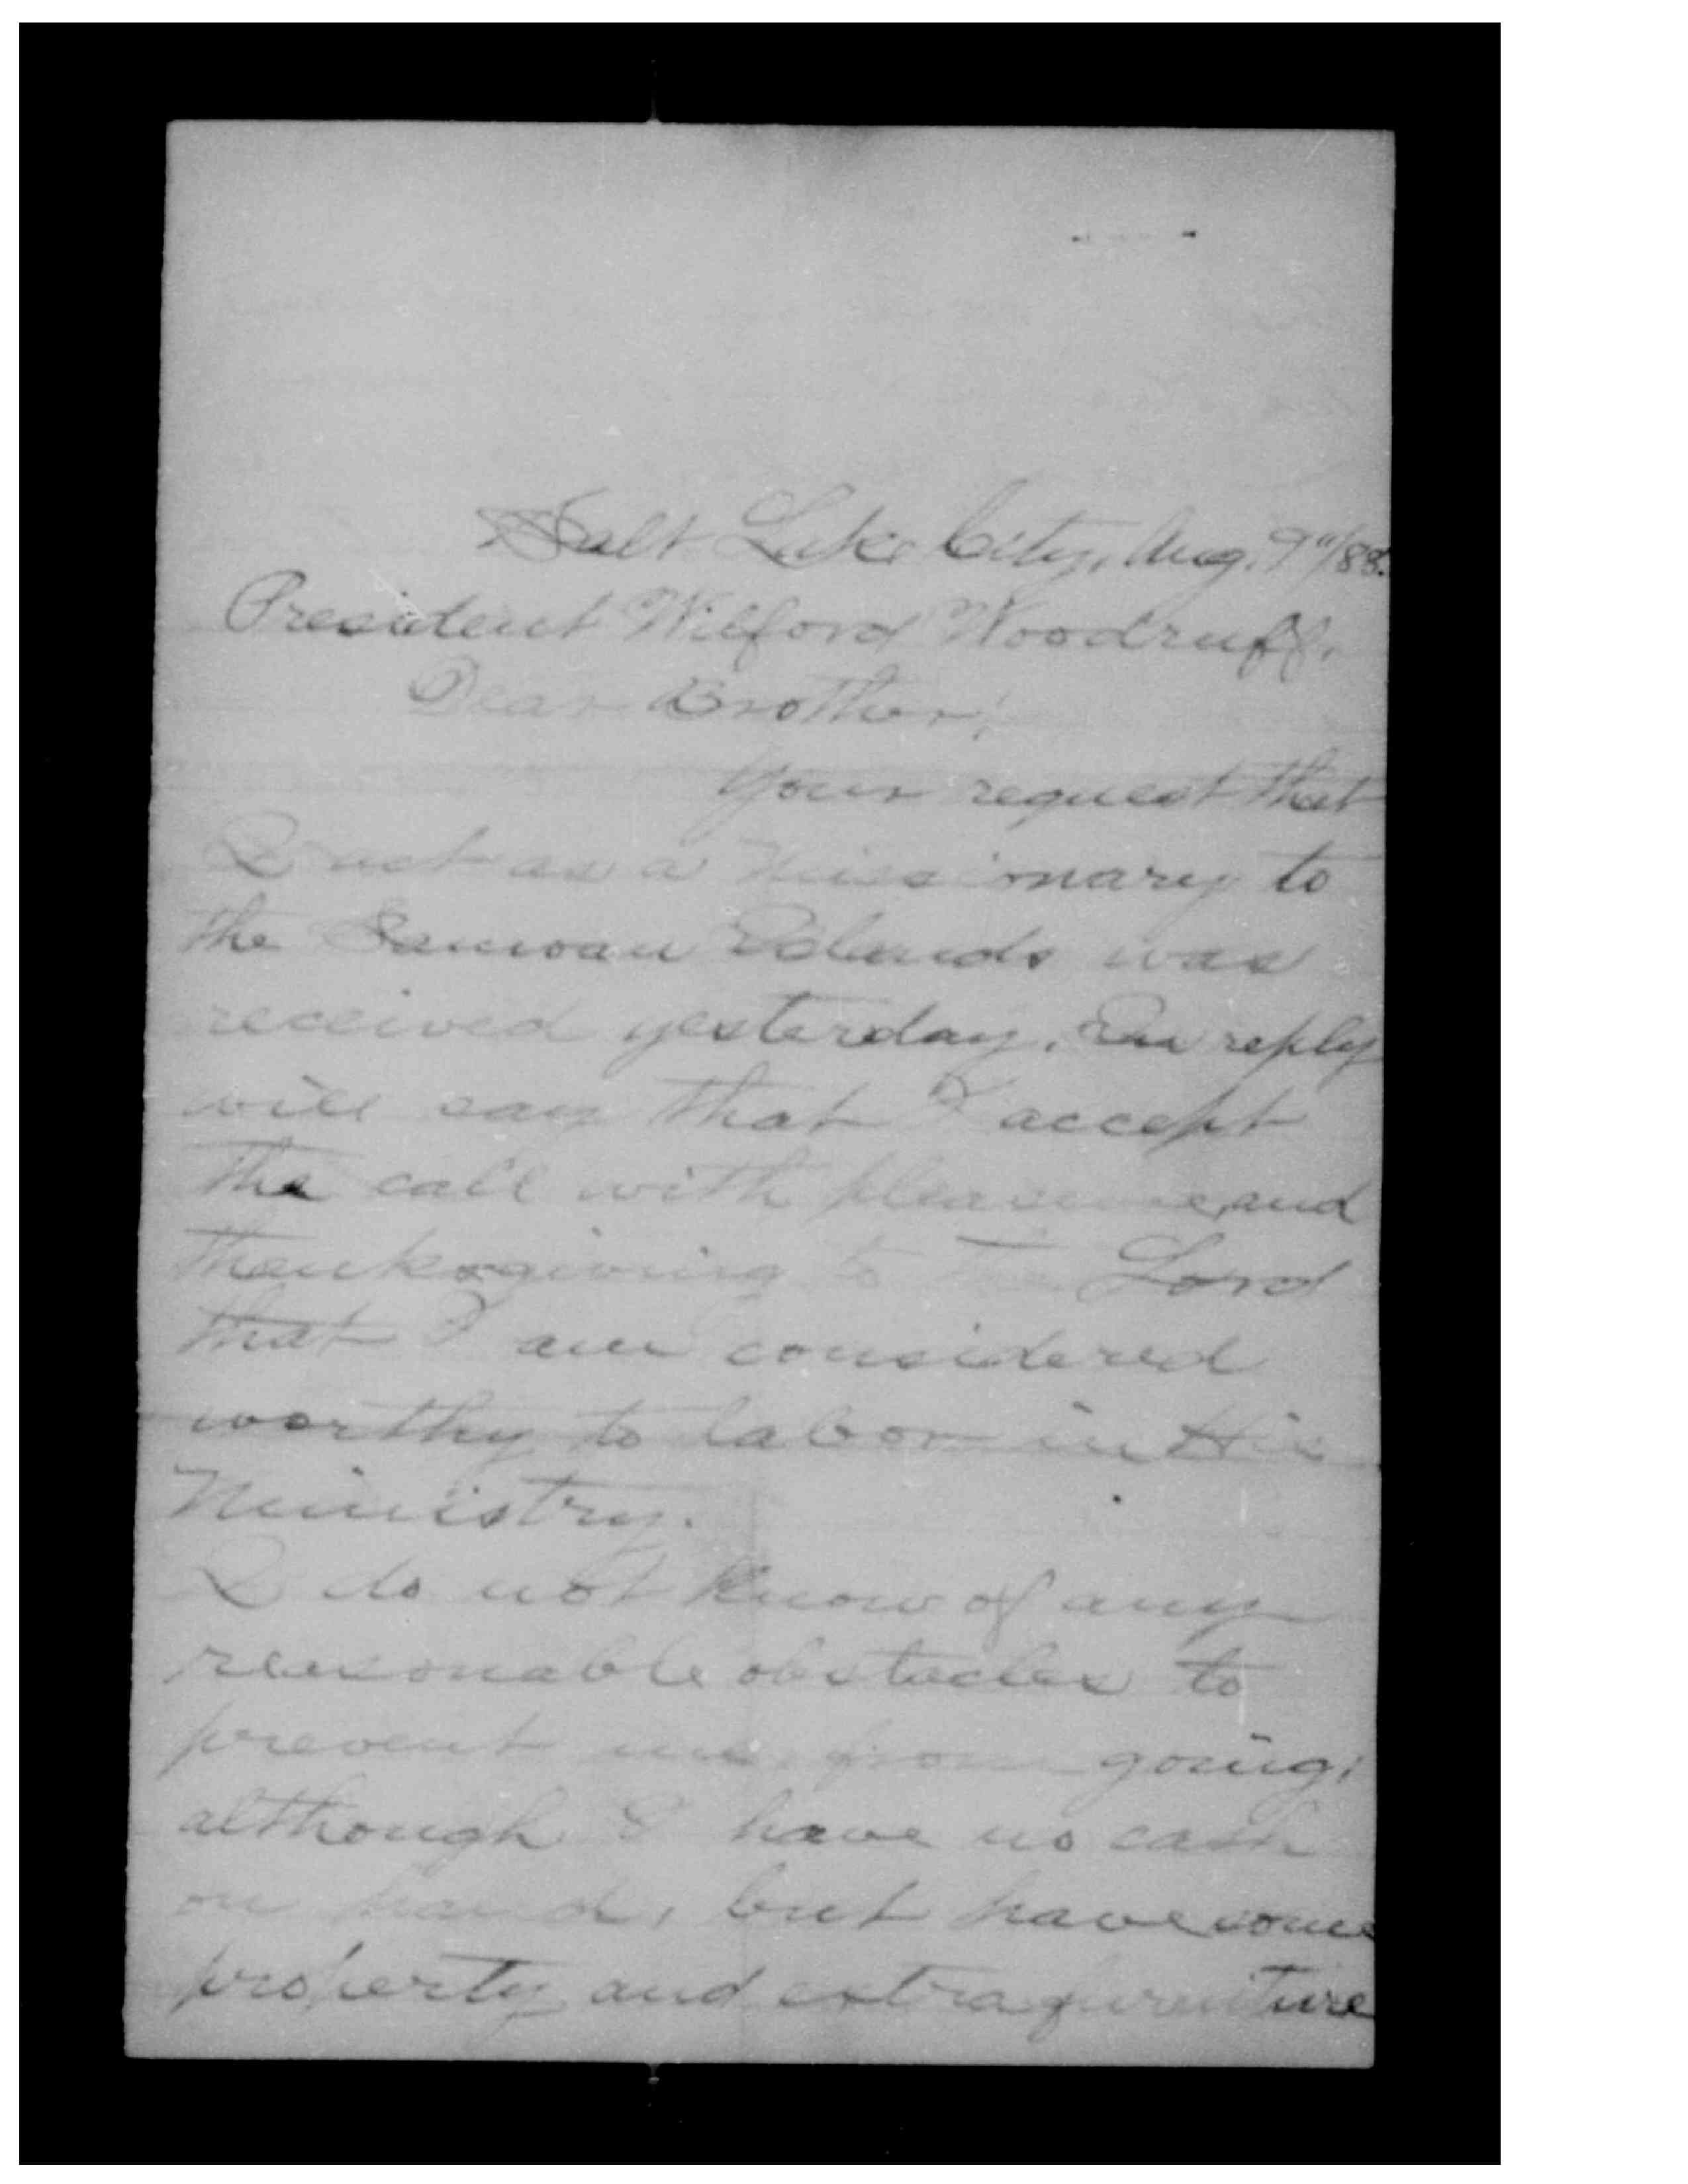 Salt Lake City, Aug. 9"/88.
President Wilford Woodruff.
Dear Brother;
Your request that
I act as a missionary to
the Samoan Islands was
received yesterday. In reply
will say that I accept
the call with pleasure, and
thanksgiving to the Lord
that I am considered
worthy to labor in His
Ministry.
I do not know of any
reasonable obstacles to
prevent me from going,
although I have no cash
on hand, but have some
property and extra furniture